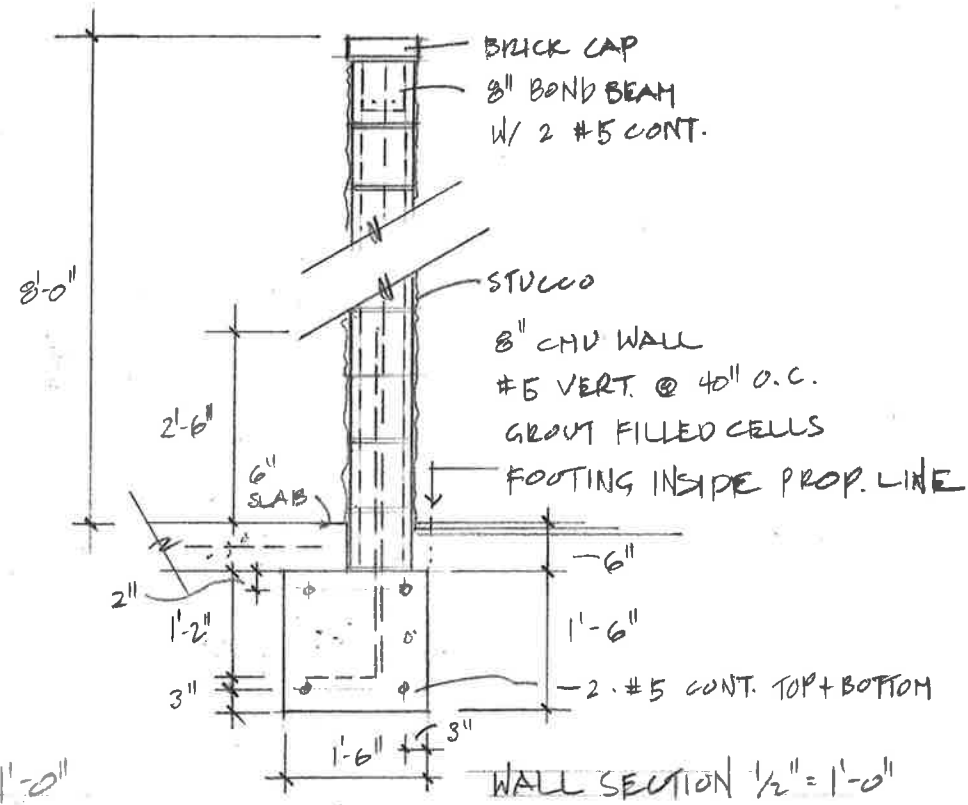 BRICK CAP
8" BOND BEAM
W/ 2 #5 CONT.
8'-0"
STUCCO
8" CMU WALL
#5 VERT. @ 40" O.C.
GROUT FILLED CELLS
FOOTING INSIDE PROP. LINE
2'-6"
6"
SLAB
6"
2"
1'-2"
1'-6"
3"
2 #5 CONT. TOP + BOTTOM
3"
1'-6"
1'-0"
WALL SECTION 1/2" = 1'-0"